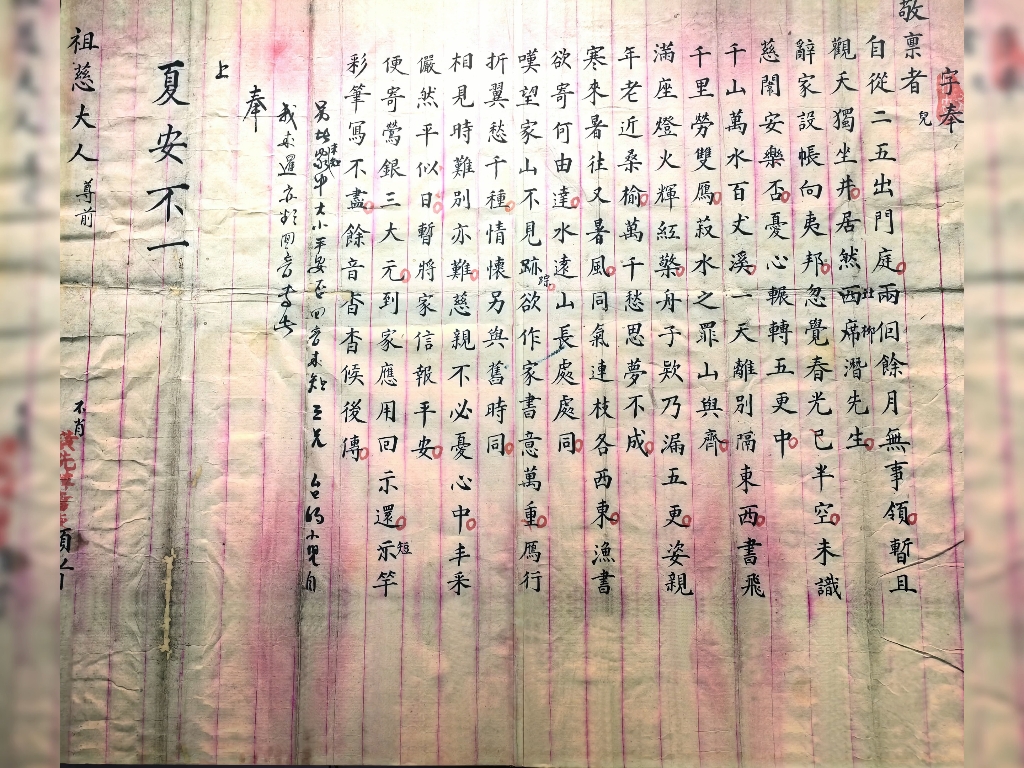 字奉
敬稟者兒
自從二五出門庭兩個餘月無事領暫且
觀天獨坐井居然西席潛先生
辭家設帳向夷邦忽覺春光已半空未識
慈闈安樂否憂心輾轉五更中
千山萬水百丈溪一天離別隔東西書飛
千里勞雙鴈菽水之罪山與齊
滿座燈火輝紅蘂舟子欵乃漏五更姿親
年老近桑榆萬千愁思夢不成
寒來暑往又暑風同氣連枝各西東漁書
欲寄何由達水遠山長處處同
嘆望家山不見跡踪欲作家書意萬重鴈行
折翼愁千種情懷另與舊時同
相見時難別亦難慈親不必憂心中丰采
儼然平似日暫將家信報平安
便寄鶯銀三大元到家應用回示還示短竿
彩筆寫不盡餘音杳杳候後傳
家中大小平安
奉
上
夏安不一
祖慈大人 尊前
不肖